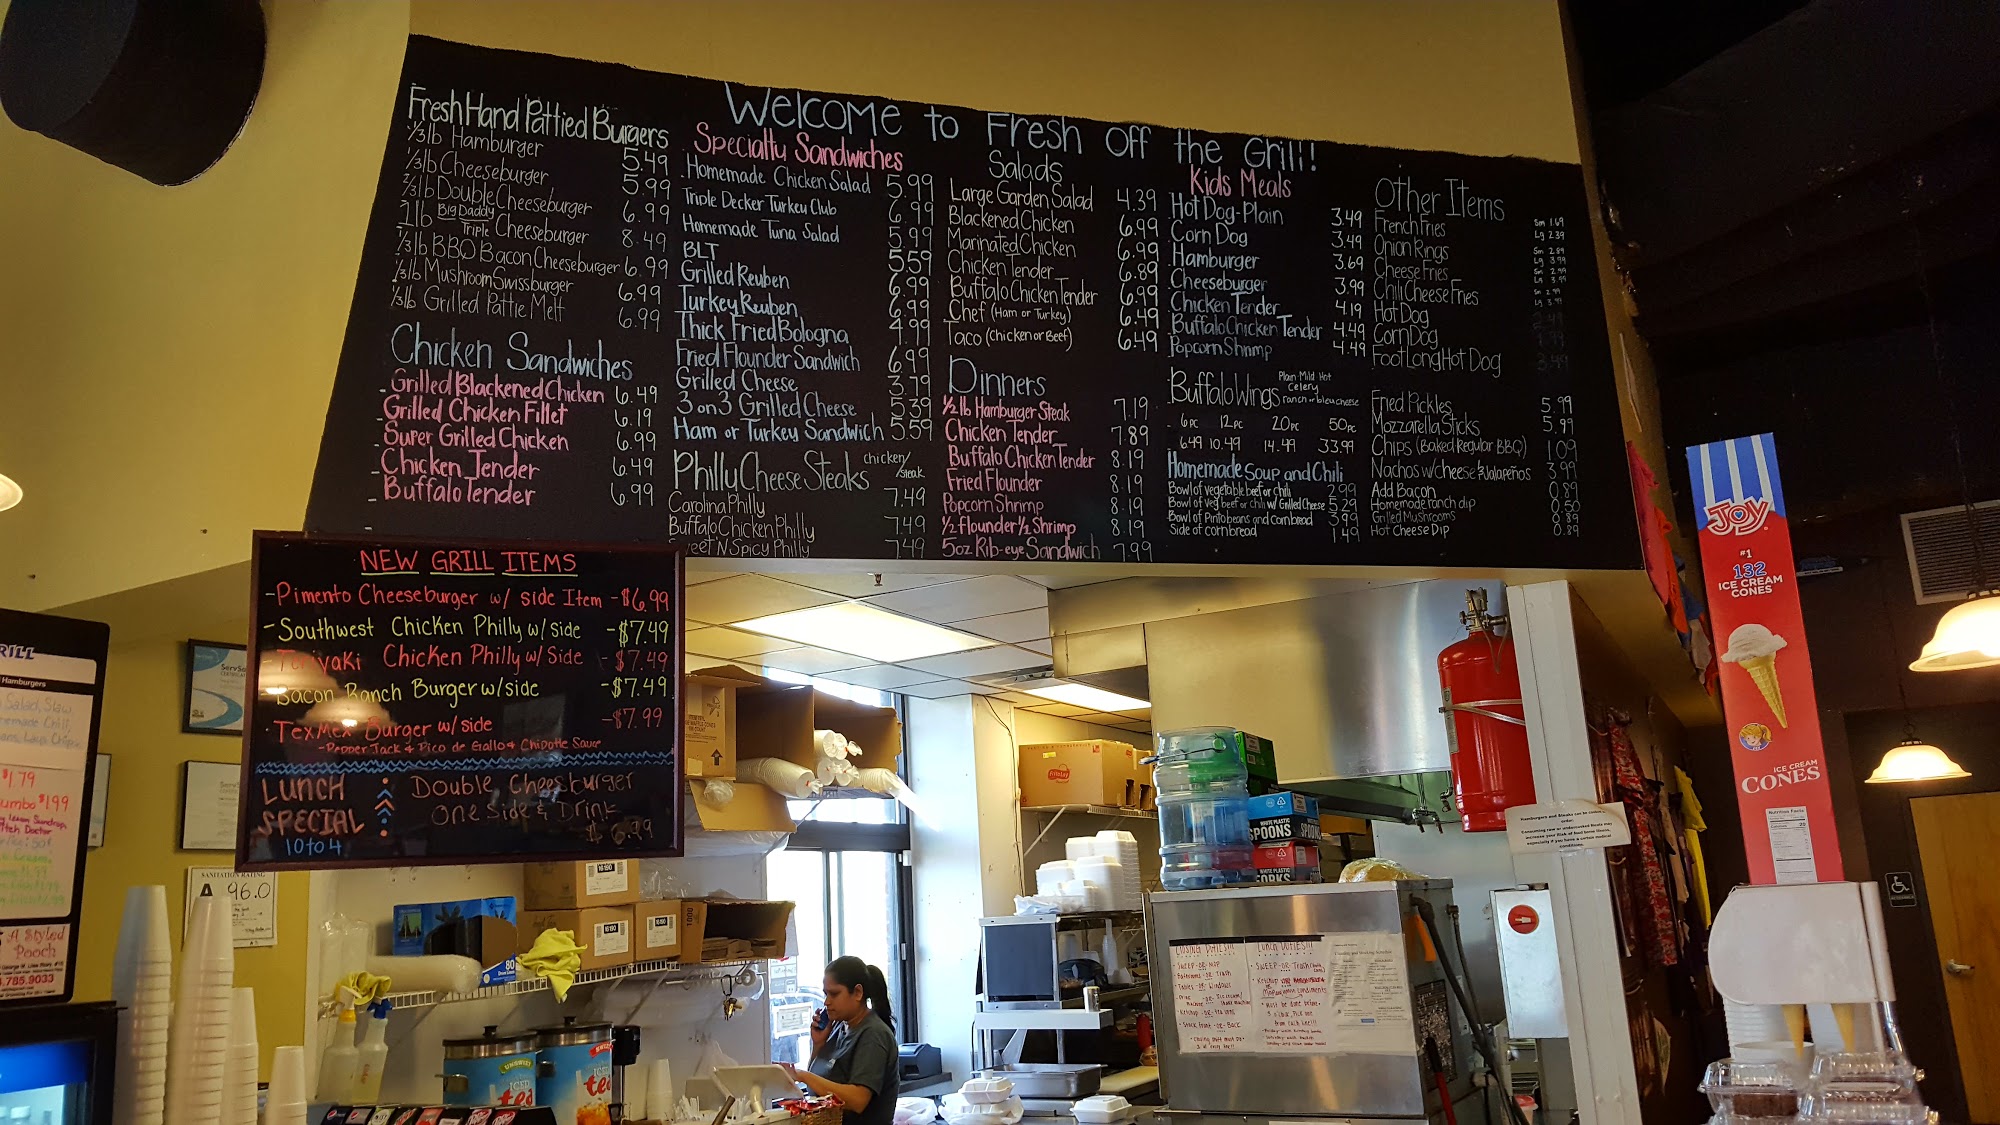 Welcome to Fresh Off the Grill!
Fresh Hand Pattied Burgers
1/3lb Hamburger 5.49
1/3lb Cheeseburger 5.99
2/3lb Double Cheeseburger 6.99
1lb Big Daddy Triple Cheeseburger 8.49
1/3lb BBQ Bacon Cheeseburger 6.99
1/3lb Mushroom Swissburger 6.99
1/3lb Grilled Pattie Melt 6.99
Chicken Sandwiches
- Grilled Blackened Chicken 6.49
- Grilled Chicken Fillet 6.19
- Super Grilled Chicken 6.99
- Chicken Tender 6.49
- Buffalo Tender 6.99
Specialty Sandwiches
Homemade Chicken Salad 5.99
Triple Decker Turkey Club 6.99
Homemade Tuna Salad 5.99
BLT 5.59
Grilled Reuben 6.99
Turkey Reuben 6.99
Thick Fried Bologna 4.99
Fried Flounder Sandwich 6.99
Grilled Cheese 3.79
3 on 3 Grilled Cheese 5.39
Ham or Turkey Sandwich 5.59
Philly Cheese Steaks chicken/steak
Carolina Philly 7.49
Buffalo Chicken Philly 7.49
Sweet N Spicy Philly 7.49
Salads
Large Garden Salad 4.39
Blackened Chicken 6.99
Marinated Chicken 6.99
Chicken Tender 6.89
Buffalo Chicken Tender 6.99
Chef (Ham or Turkey) 6.49
Taco (Chicken or Beef) 6.49
Dinners
1/2 lb Hamburger Steak 7.19
Chicken Tender 7.89
Buffalo Chicken Tender 8.19
Fried Flounder 8.19
Popcorn Shrimp 8.19
1/2 flounder 1/2 Shrimp 8.19
5oz Rib-eye Sandwich 7.99
Kids Meals
Hot Dog-Plain 3.49
Corn Dog 3.49
Hamburger 3.69
Cheeseburger 3.99
Chicken Tender 4.19
Buffalo Chicken Tender 4.49
Popcorn Shrimp 4.49
Buffalo Wings Plain Mild Hot
Celery
ranch or bleu cheese
- 6pc 12pc 20pc 50pc
6.49 10.49 14.49 33.99
Homemade Soup and Chili
Bowl of vegetable beef or chili 2.99
Bowl of veg beef or chili w/ Grilled Cheese 5.29
Bowl of Pinto beans and cornbread 3.99
Side of cornbread 1.49
Other Items
French Fries Sm 1.69
Lg 2.39
Onion Rings Sm 2.89
Lg 3.99
Cheese Fries Sm 2.99
Lg 3.99
Chili Cheese Fries Sm 2.99
Lg 3.99
Hot Dog
Corn Dog
Foot Long Hot Dog 3.49
Fried Pickles 5.99
Mozzarella Sticks 5.99
Chips (Baked Regular BBQ) 1.09
Nachos w/cheese & Jalapeños 3.99
Add Bacon 0.89
Homemade ranch dip 0.50
Grilled Mushrooms 0.89
Hot Cheese Dip 0.89
NEW GRILL ITEMS
- Pimento Cheeseburger w/ side Item - $6.99
- Southwest Chicken Philly w/ side - $7.49
- Teriyaki Chicken Philly w/ Side - $7.49
- Bacon Ranch Burger w/side - $7.49
- TexMex Burger w/side - $7.99
- Pepper Jack & Pico de Gallo & Chipotle Sauce
LUNCH SPECIAL
10 to 4
Double Cheesburger
One Side & Drink
$6.79
RILL
Hamburgers
$1.79
$1.99
A Styled
Pooch
.785.9033
SANITATION RATING
A 96.0
JOY
#1
132
ICE CREAM
CONES
ICE CREAM
CONES
Nutrition Facts
WHITE PLASTIC
SPOONS
WHITE PLASTIC
FORKS
CLOSING DUTIES!!!
SWEEP -OR- MOP
Bathrooms -OR- Trash
Tables -OR- Windows
LUNCH DUTIES!!!
SWEEP -OR- Trash
80
ICED
tea
ICED
tea
pepsi